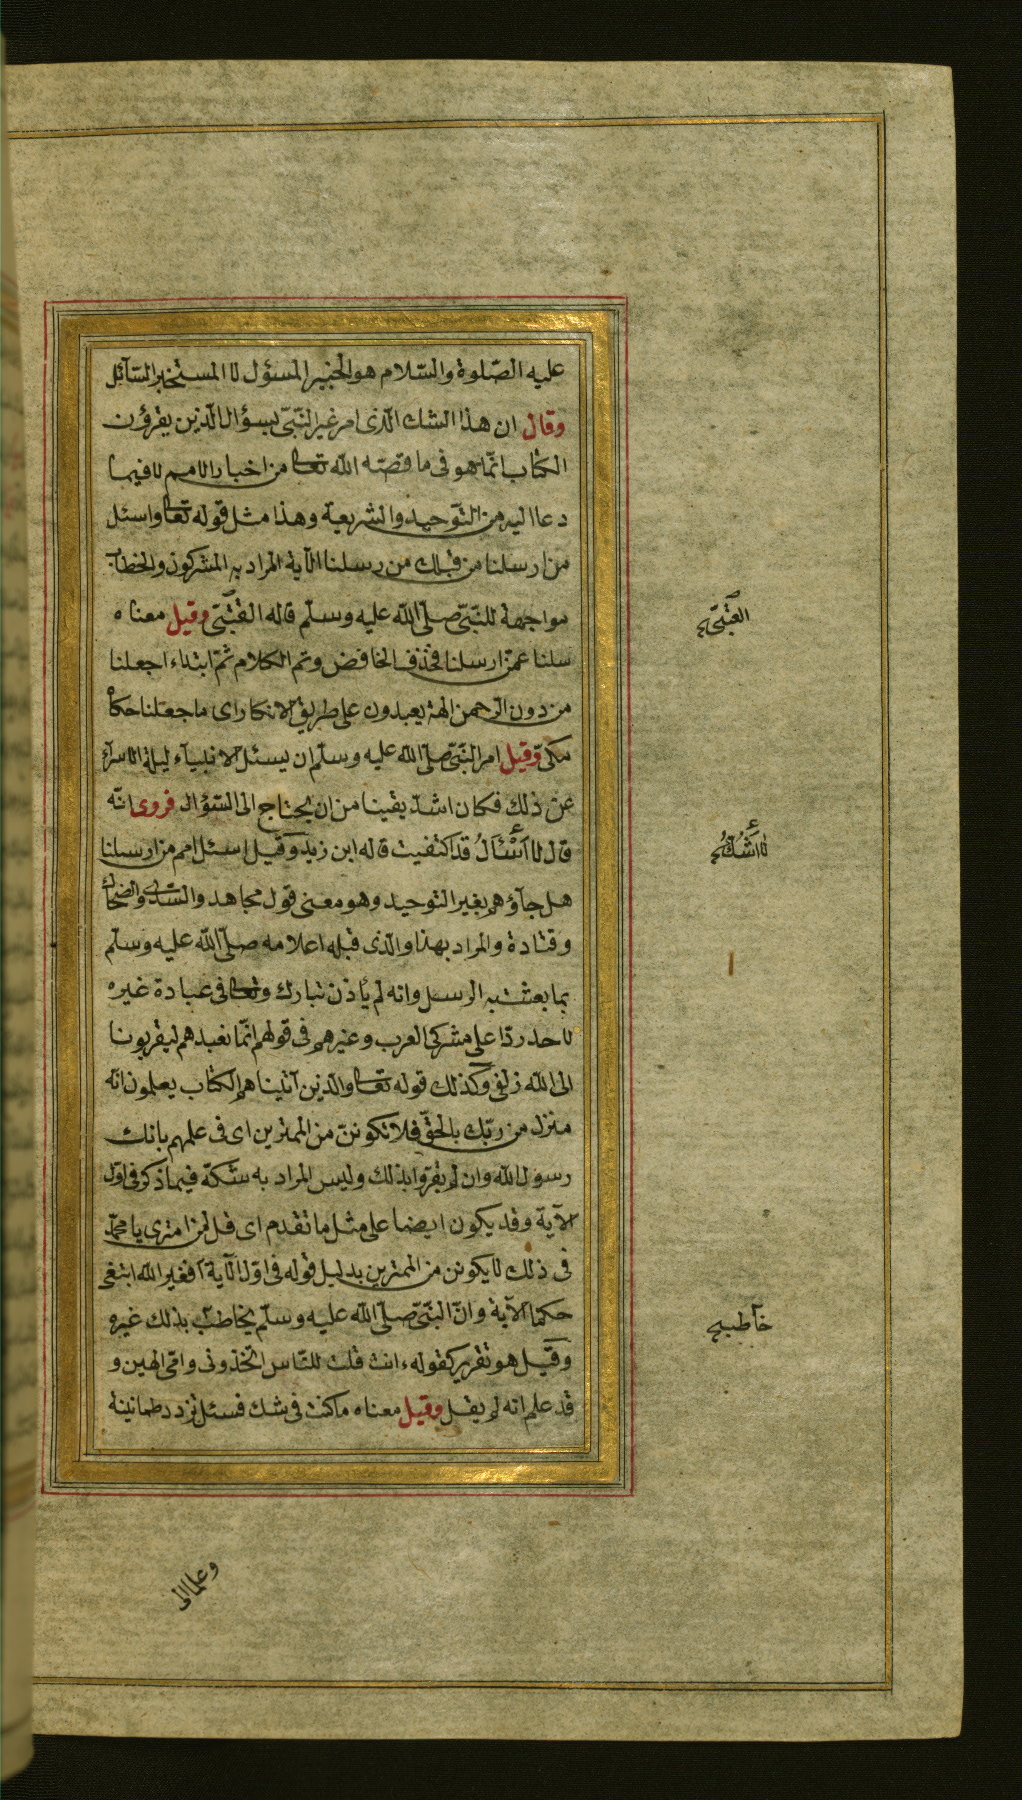 عليه الصّلوة والسّلام هو الخبير المسؤل لا المستخبر السّآئل
وقال ان هذا الشك الّذى امر غير النّبىّ بسؤال الّذين يقرؤن
الكتاب انّما هو فى ما قصّه الله تعالى من اخبار الامم لا فيما
دعا اليه من التّوحيد والشريعة وهذا مثل قوله تعالى واسئل
من ارسلنا من قبلك من رسلنا الآية المراد به المشركون والخطاب
مواجهة للنّبىّ صلّى الله عليه وسلّم قاله القتبىّ وقيل معناه
سلنا عمّن ارسلنا فحذف الخافض وتم الكلام ثمّ ابتداء اجعلنا
من دون الرّحمن الهة يعبدون على طريق الانكار اى ما جعلنا حكاه
مكىّ وقيل امر النّبىّ صلّى الله عليه وسلّم ان يسئل الانبيآء ليلة الاسرآء
عن ذلك فكان اشدّ يقينا من ان يحتاج الى السّؤال فروى انّه
قال لا اَسْئَلُ قد اكتفيت قاله ابن زيد وقيل اسئل امم من ارسلنا
هل جآؤهم بغير التوحيد وهو معنى قول مجاهد والسّدّى والضحاك
وقتادة والمراد بهذا والّذى قبله اعلامه صلّى الله عليه وسلّم
بما بعثت به الرسل وانه لم يأذن تبارك وتعالى فى عبادة غيره
لاحد ردّا على مشركى العرب وغيرهم فى قولهم انّما نعبدهم ليقربونا
الى الله زلفى وكذلك قوله تعالى والّذين آتيناهم الكتاب يعلمون انّه
منزل من ربّك بالحقّ فلا تكوننّ من الممترين اى فى علمهم بانك
رسول الله وان لم يقرّوا بذلك وليس المراد به شكّه فيما ذكر فى اوّل
الآية وقد يكون ايضا على مثل ما تقدم اى قل لمن امترى يا محمّد
فى ذلك لا يكونن من الممترين بدليل قوله فى اوّل الآية افغير الله ابتغى
حكما الآية وانّ النّبىّ صلّى الله عليه وسلّم يخاطب بذلك غيره
وقيل هو تقرير كقوله ءانت قلت للنّاس اتّخذونى وامّى الهين و
قد علم انه لم يقل وقيل معناه ما كنت فى شك فسئل تزدد طمانينة
العُتْبِىّ صح
لا اَشُكُّ صح
خاطب صح
وعلما الى